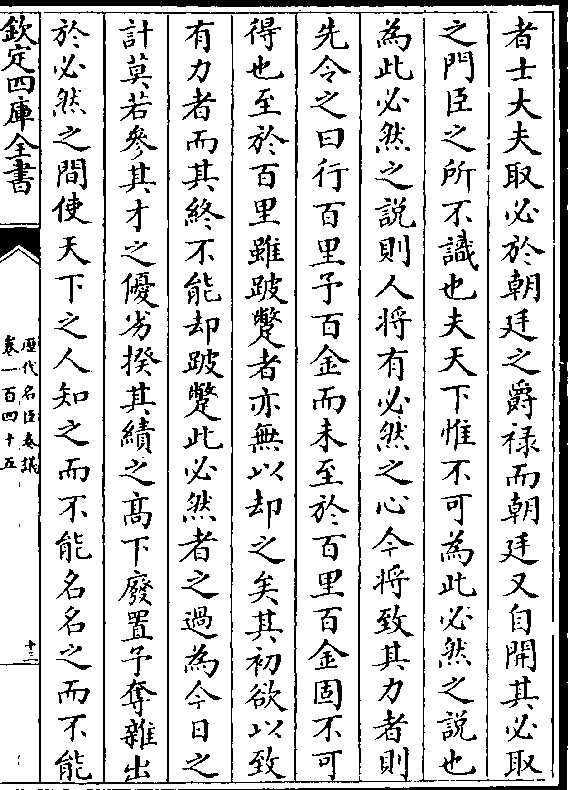 者士大夫取必於朝廷之爵祿而朝廷又自開其必取
之門臣之所不識也夫天下惟不可為此必然之說也
為此必然之說則人將有必然之心今將致其力者則
先令之曰行百里予百金而未至於百里百金固不可
得也至於百里雖跛躄者亦無以却之矣其初欲以致
有力者而其終不能却跛躄此必然者之過為今日之
計莫若參其才之優劣揆其績之髙下廢置予奪雜出
於必然之間使天下之人知之而不能名名之而不能
欽定四庫全書
歷代名臣奏議
卷一百四十五
十三